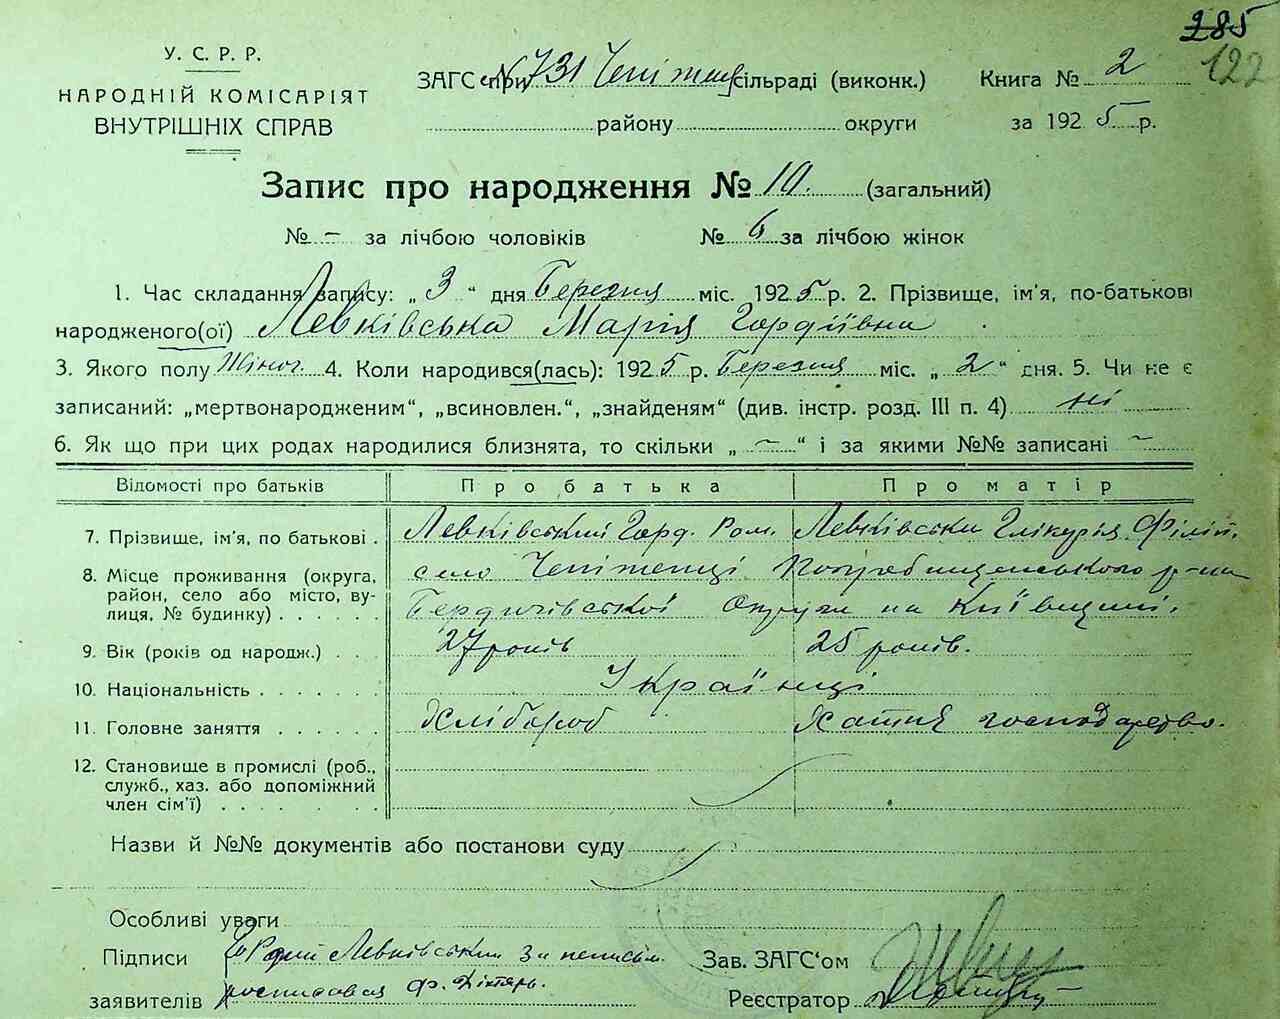 285
122
У. С. Р. Р.
НАРОДНІЙ КОМІСАРІЯТ
ВНУТРІШНІХ СПРАВ
ЗАГС при №731 сільраді (виконк.)
району округи
Книга № 2
за 1925 р.
Запис про народження № 10. (загальний)
№ – за лічбою чоловіків № 6 за лічбою жінок
1. Час складання запису: „ 3 “ дня Березня міс. 1925 р. 2. Прізвище, ім'я, по-батькові
народженого(ої) Левківська Марія Гордіївна
3. Якого полу Жіноч. 4. Коли народився(лась): 1925 р. Березня міс. „ 2 “ дня. 5. Чи не є
записаний: „мертвонародженим“, „всиновлен.“, „знайденям“ (див. інстр. розд. III п. 4) ні
6. Як що при цих родах народилися близнята, то скільки „ – “ і за якими №№ записані –
Відомості про батьків Про батька Про матір
7. Прізвище, ім'я, по батькові . Левківський Горд. Ром. Левківська Глікерія Філіп.
8. Місце проживання (округа, район, село або місто, вулиця, № будинку) . . . . . . село Погребищенського р-на
Бердичівської Округи на Київщині.
9. Вік (років од народж.) . . . 27 років 25 років.
10. Національність . . . . . . . Українці
11. Головне заняття . . . . . . Хлібороб Хатнє господарство.
12. Становище в промислі (роб., служб., хаз. або допоміжний член сім'ї) . . . . . . .
Назви й №№ документів або постанови суду
Особливі уваги
Підписи Гордій Левківський За неписьм.
заявителів росписався Ф.
Зав. ЗАГС'ом
Реєстратор